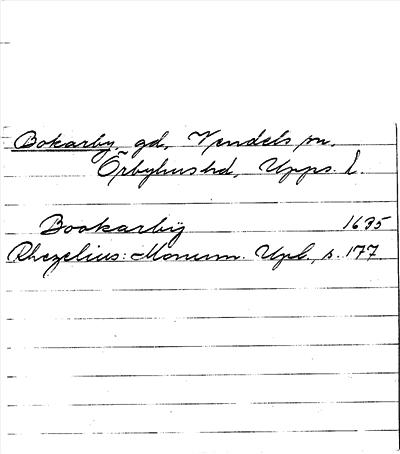 Bokarby, gd, Vendels sn.
Örbyhus hd, Upps. l.
Bookarbÿ 1635
Rhezelius: Monum. Upl., s. 177.